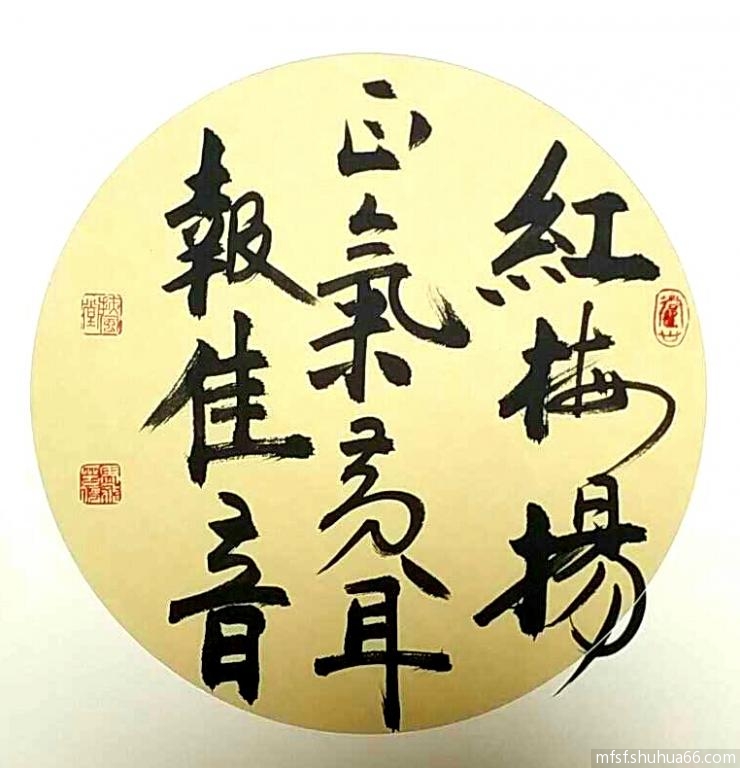 紅梅揚
正氣黄耳
報佳音
mfsf.shuhua66.com